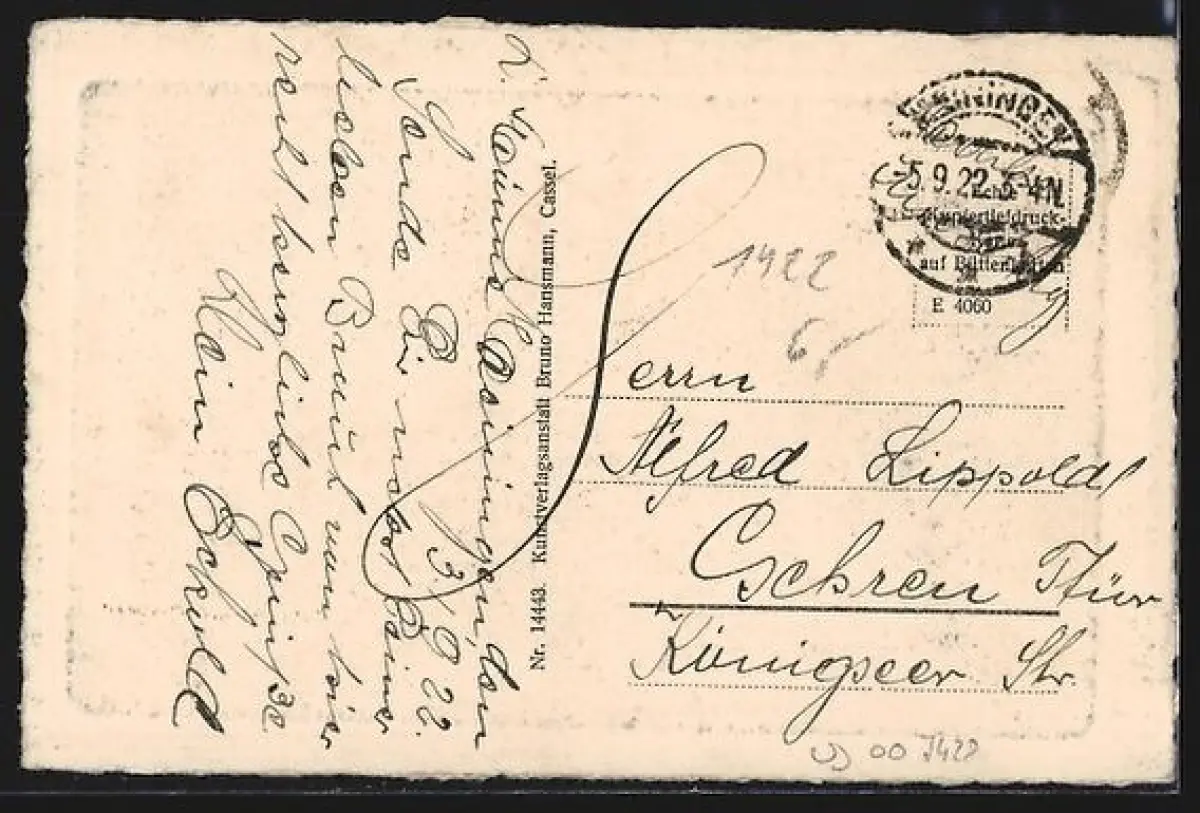 Z. Zt. Meiningen, den
3./9.22.
Sende Dir nebst Deiner
lieben Braut von hier
recht herzliche Grüsse
Dein Eckold
Nr. 14443. Kunstverlagsanstalt Bruno Hansmann, Cassel.
MEININGEN
-5.9.22.3-4N
Echte
Kupfertiefdruck-
auf Bütten
E 4060
1422
6,-
Herrn
Alfred Lippold
Gehren Thür
Königseer Str.
00 1422